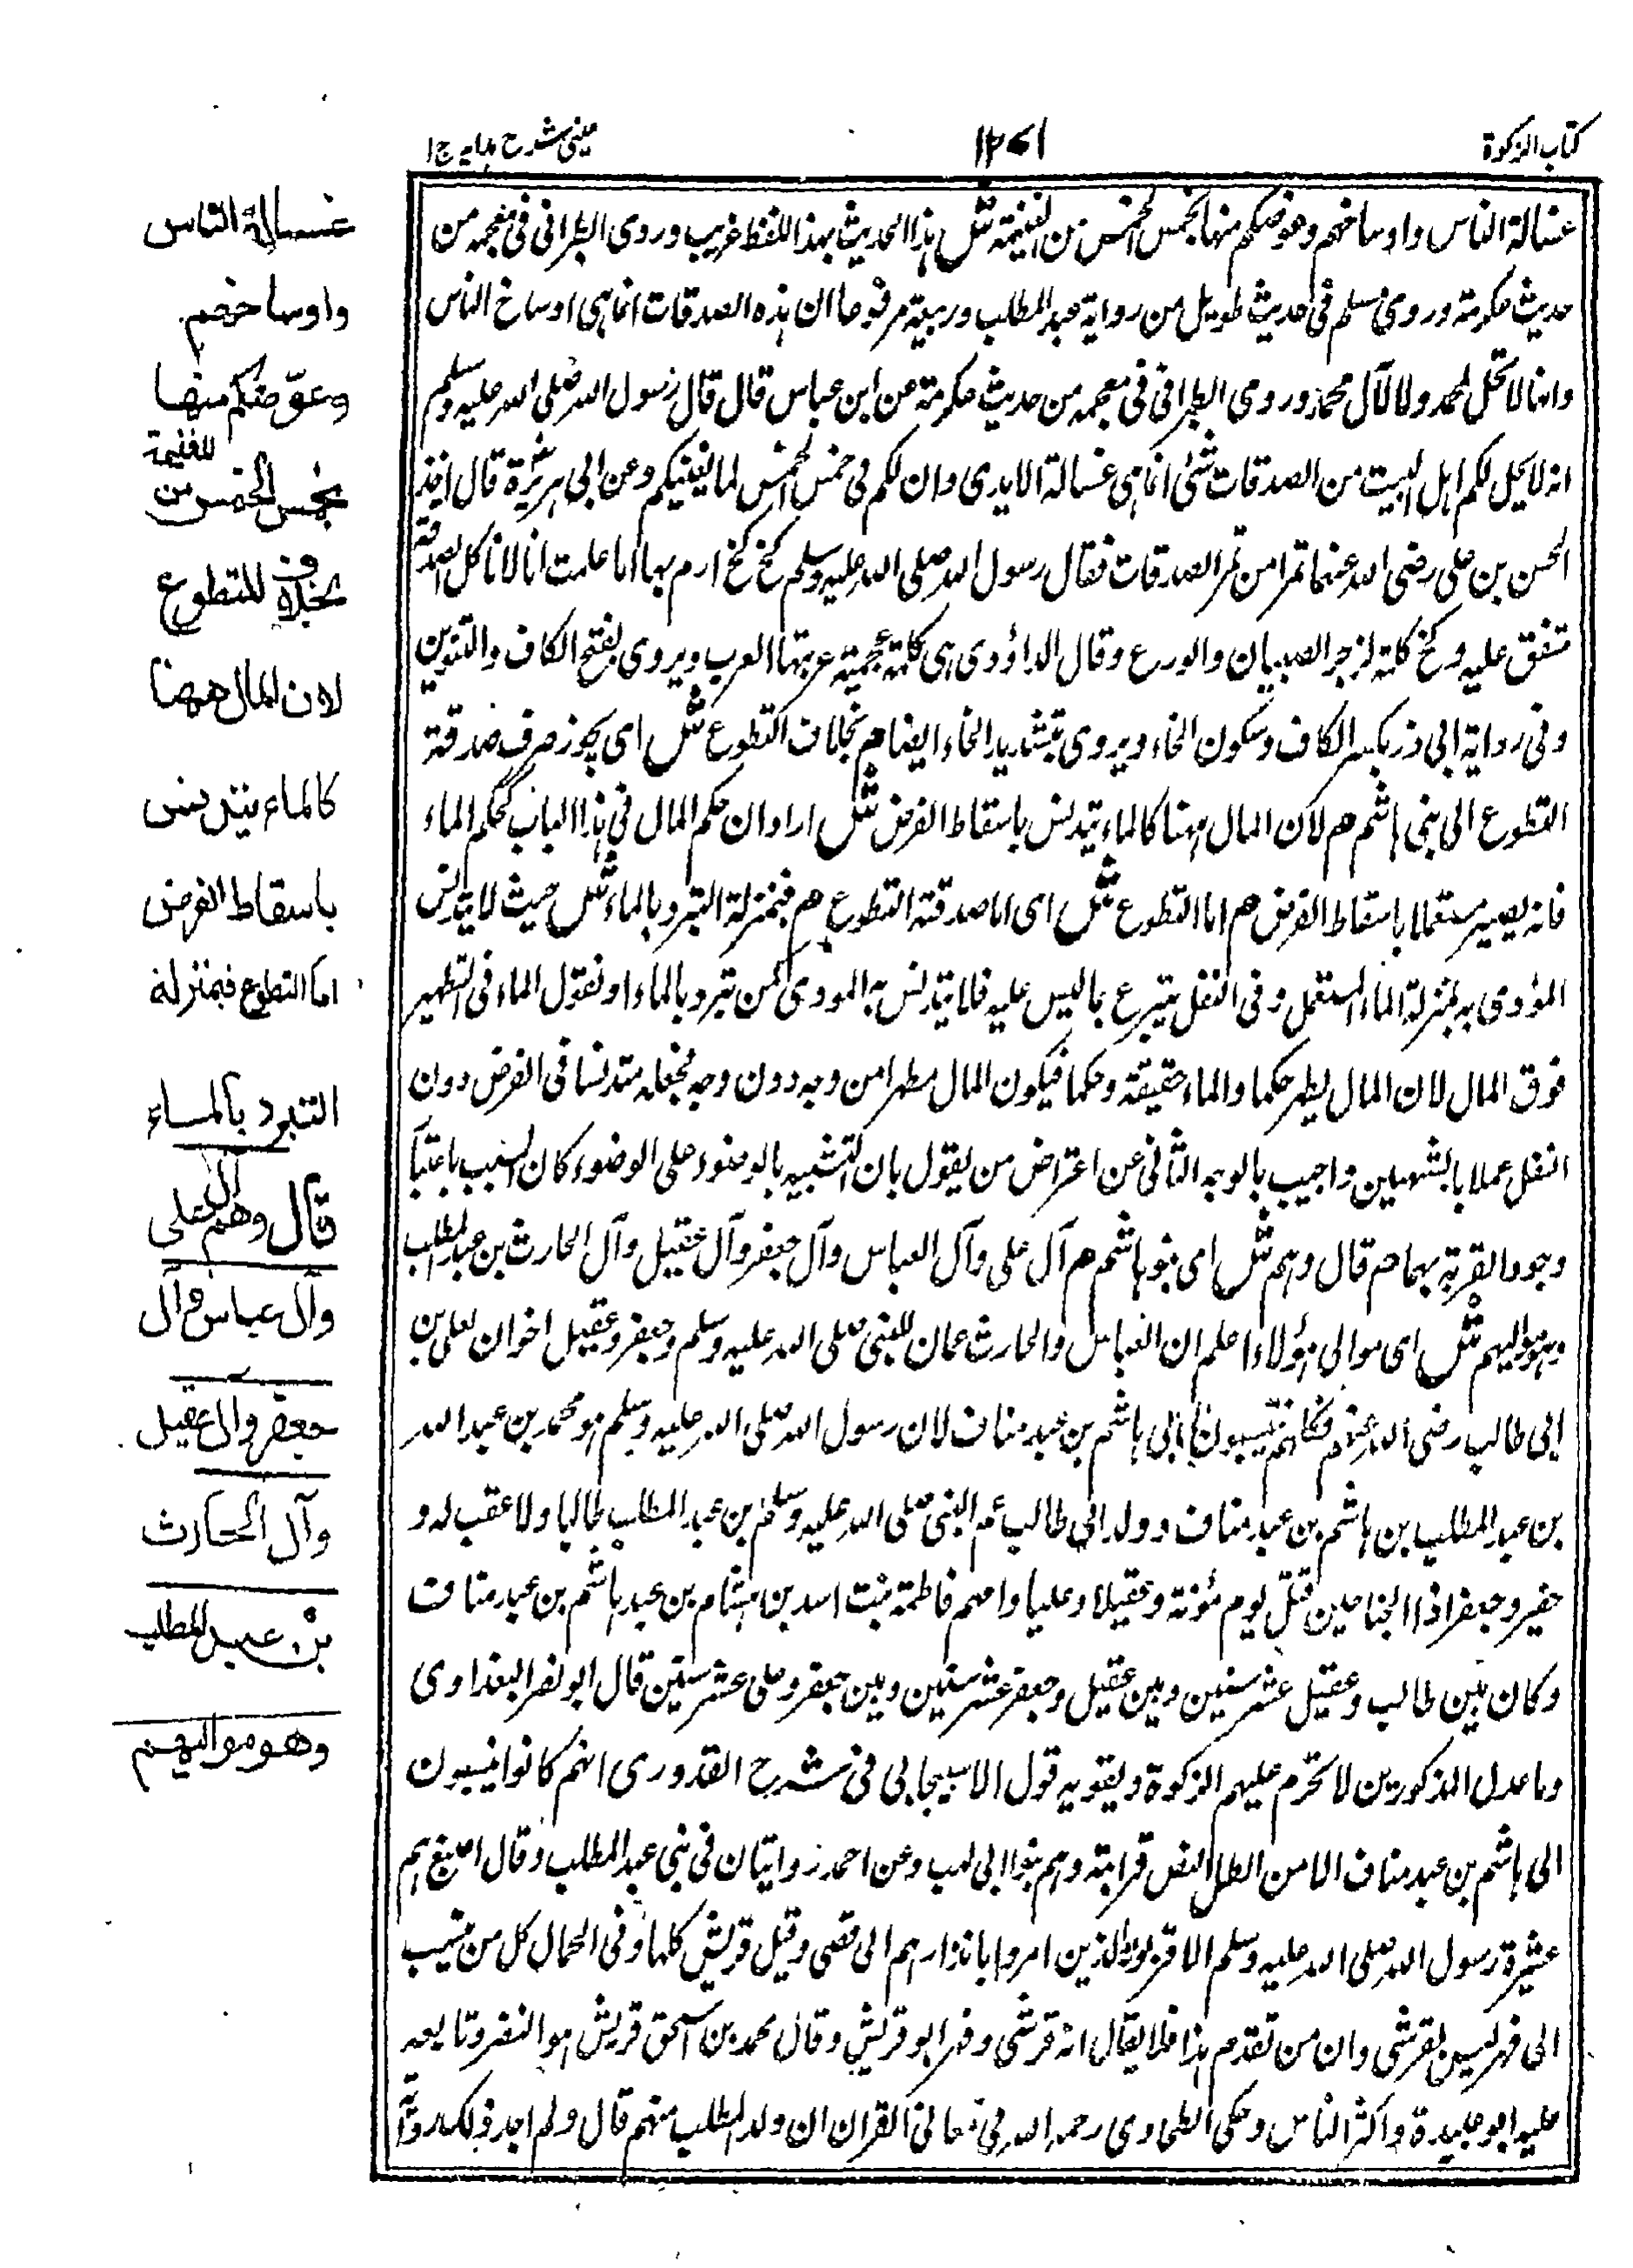 كتاب الزكوة
١٢٧١
عيني شرح هدايه ج١
غسالة الناس واوساخهم وعوضكم منها بخمس الخمس من الغنيمة ش هذا الحديث بهذا اللفظ غريب وروى الطبرانى فى معجمه من
حديث عكرمة وروى مسلم فى حديث طويل من رواية عبد المطلب وربيعة مرفوعا ان هذه الصدقات انما هى اوساخ الناس
وانها لا تحل لمحمد ولا لآل محمد وروى الطبرانى فى معجمه من حديث عكرمة عن ابن عباس قال قال رسول الله صلى الله عليه وسلم
انه لا يحل لكم اهل البيت من الصدقات شئ انما هى غسالة الايدى وان لكم فى خمس الخمس لما يغنيكم وعن ابى هريرة قال اخذ
الحسن بن على رضى الله عنهما تمرا من تمر الصدقات فقال رسول الله صلى الله عليه وسلم كخ كخ ارم بها اما علمت انا لا ناكل الصدقة
متفق عليه وكخ كلمة لزجر الصبيان والورع وقال الداؤدى هى كلمة عجمية عربتها العرب ويروى بفتح الكاف والتنوين
وفى رواية ابى ذر بكسر الكاف وسكون الخاء ويروى بتشديد الخاء ايضا م بخلاف التطوع ش اى يجوز صرف صدقة
التطوع الى بنى هاشم م لان المال ههنا كالماء يتدنس باسقاط الفرض ش اراد ان حكم المال فى هذا الباب كحكم الماء
فانه يصير مستعملا باسقاط الفرض م اما التطوع ش اى اما صدقة التطوع م فبمنزلة التبرد بالماء ش حيث لا يتدنس
المؤدى به بمنزلة الماء المستعمل وفى النفل يتبرع بما ليس عليه فلا يتدنس به المودى كمن تبرد بالماء او نقول الماء فى التطهير
فوق المال لان المال يطهر حكما والماء حقيقة وحكما فيكون المال مطهرا من وجه دون وجه فجعله متدنسا فى الفرض دون
النفل عملا بالشبهين واجيب بالوجه الثانى عن اعتراض من يقول بان التشبيه بالوضوء على الوضوء كان انسب باعتبار
وجود القربة بهما م قال وهم ش اى بنو هاشم م آل على وآل العباس وآل جعفر وآل عقيل وآل الحارث بن عبد المطلب
وهو مواليهم ش اى موالى هؤلاء اعلم ان العباس والحارث عمان للنبى صلى الله عليه وسلم وجعفر وعقيل اخوان لعلى بن
ابى طالب رضى الله عنهم فكلهم ينسبون الى هاشم بن عبد مناف لان رسول الله صلى الله عليه وسلم هو محمد بن عبد الله
بن عبد المطلب بن هاشم بن عبد مناف وولد ابى طالب عم النبى صلى الله عليه وسلم بن عبد المطلب طالبا ولا عقب له و
جعفر وجعفرا ذا الجناحين قتل يوم مؤتة وعقيلا وعليا وامهم فاطمة بنت اسد بن هشام بن عبد هاشم بن عبد مناف
وكان بين طالب وعقيل عشر سنين وبين عقيل وجعفر عشر سنين وبين جعفر وعلى عشر سنين قال ابو نصر البغدادى
وما عدل المذكورين لا تحرم عليهم الزكوة ويقويه قول الاسبيجابى فى شرح القدورى انهم كانوا ينسبون
الى هاشم بن عبد مناف الا من ابطل النص قرابته وهم بنوا ابى لهب وعن احمد روايتان فى بنى عبد المطلب وقال اصبغ هم
عشيرة رسول الله صلى الله عليه وسلم الاقربون الذين امروا بانذارهم الى قصى وقيل قريش كلها وفى الحال كل من ينسب
الى فهر ليس بقرشى وان من تقدم هذا فلا يقال انه قرشى وفهر ابو قريش وقال محمد بن اسحق قريش هو النضر وتابعه
عليه ابو عبيدة واكثر الناس وحكى الطحاوى رحمه الله فى معانى القران ان ولد المطلب منهم قال ولم اجد ذلك رواية
غسالة الناس
واوساخهم
وعوّضكم منها
بخمس الخمس من الغنيمة
بخلاف التطوع
لان المال ههنا
كالماء يتدنس
باسقاط الفرض
اما التطوع فبمنزلة
التبرد بالماء
قال وهم آل على
وآل عباس وآل
جعفر وآل عقيل
وآل الحارث
بن عبد المطلب
وهو مواليهم